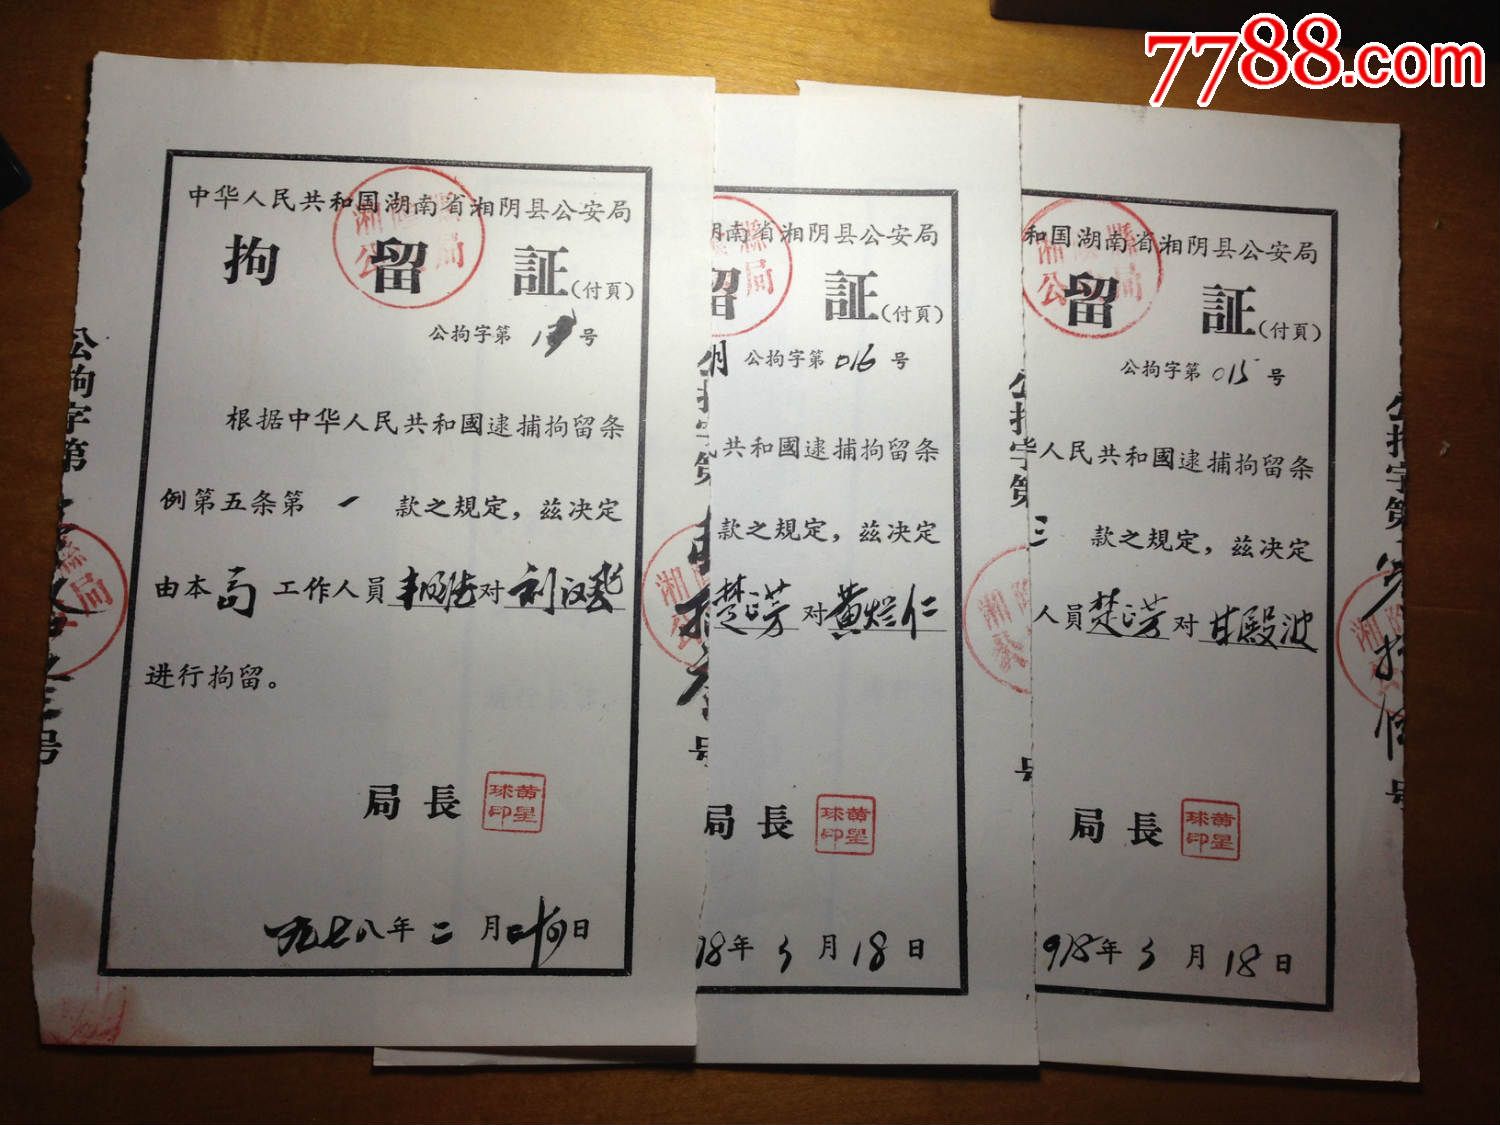 7788.com
中华人民共和国湖南省湘阴县公安局
拘留証(付頁)
公拘字第 号
根据中华人民共和國逮捕拘留条
例第五条第一款之規定，茲决定
由本局工作人員 对
进行拘留。
局長
黄星球印
一九七八年二月 日
公拘字第 号
湖南省湘阴县公安局
留証(付頁)
公拘字第016号
共和國逮捕拘留条
款之規定，茲决定
楚正芳对黄烂仁
局長
黄星球印
78年3月18日
和国湖南省湘阴县公安局
留証(付頁)
公拘字第015号
人民共和國逮捕拘留条
三款之規定，茲决定
人員楚正芳对甘毅波
局長
黄星球印
1978年3月18日